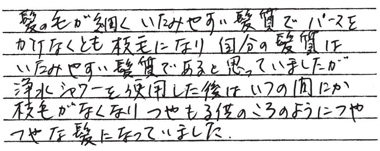 髪の毛が細く いたみやすい髪質で パースを
かけなくとも 枝毛になり 自分の髪質は
いたみやすい髪質であると思っていましたが
浄水シャワーを使用した後は いつの間にか
枝毛がなくなり つやも子供のころのようにつや
つやな髪になっていました.